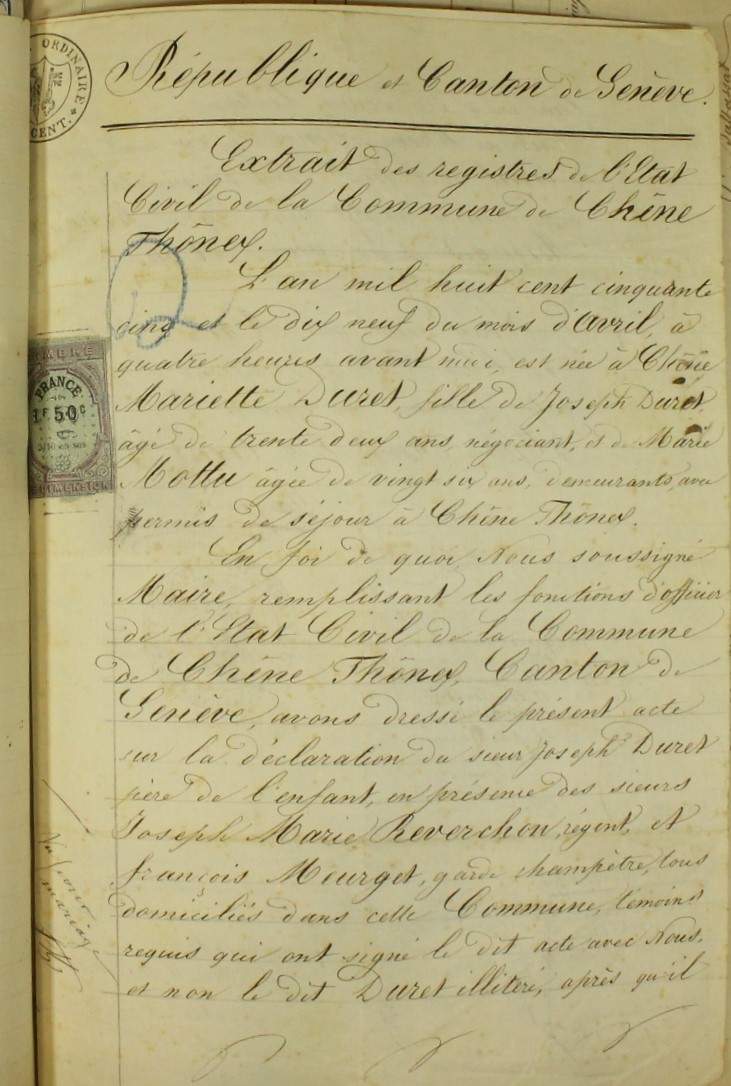 ORDINAIRE
CENT.
République et Canton de Genève.
Extrait des registres de l'Etat
Civil de la Commune de Chêne
Thônex.
L'an mil huit cent cinquante
cinq et le dix neuf du mois d'Avril, à
quatre heures avant midi, est née à Chêne
Mariette Duret, fille de Joseph Duret,
âgé de trente deux ans, négociant, et de Marie
Mottu âgée de vingt six ans, demeurants, avec
permis de séjour à Chêne Thônex.
En foi de quoi, Nous soussigné
Maire, remplissant les fonctions d'officier
de l'Etat Civil de la Commune
de Chêne Thônex, Canton de
Genève, avons dressé le présent acte
sur la déclaration du sieur Joseph Duret
père de l'enfant, en présence des sieurs
Joseph Marie Reverchon, régent, et
françois Meurget, garde champêtre, tous
domiciliés dans cette Commune, témoins
requis qui ont signé le dit acte avec Nous,
et non le dit Duret illitéré, après qu'il
FRANCE
50 c
Vu pour
mariage